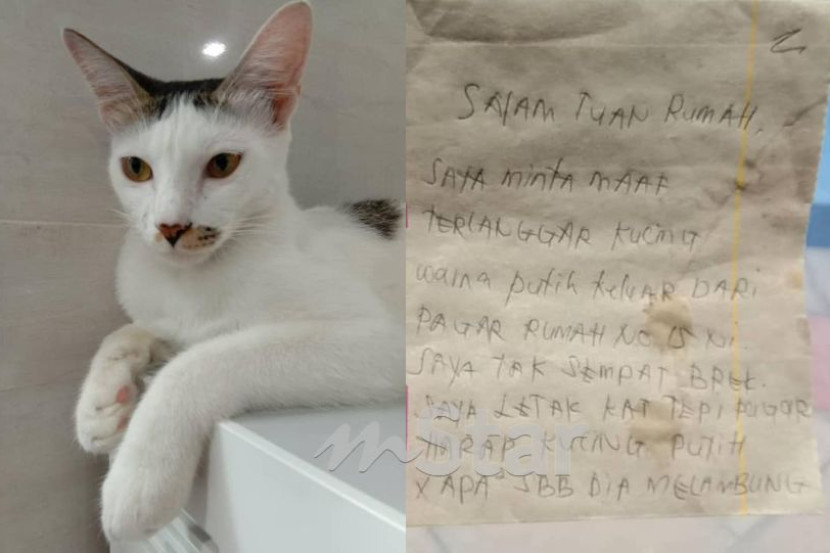 SALAM TUAN RUMAH,
SAYA minta MAAF
TERLANGGAR KUCING
warna putih keluar DARI
PAGAR RUMAH NO
SAYA TAK SEMPAT BREK.
SAYA LETAK KAT TEPI PAGAR
HARAP KUCING PUTIH
X APA² SBB DIA MELAMBUNG
mStar